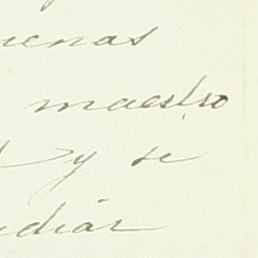 uenas
maestro
y se
udiar